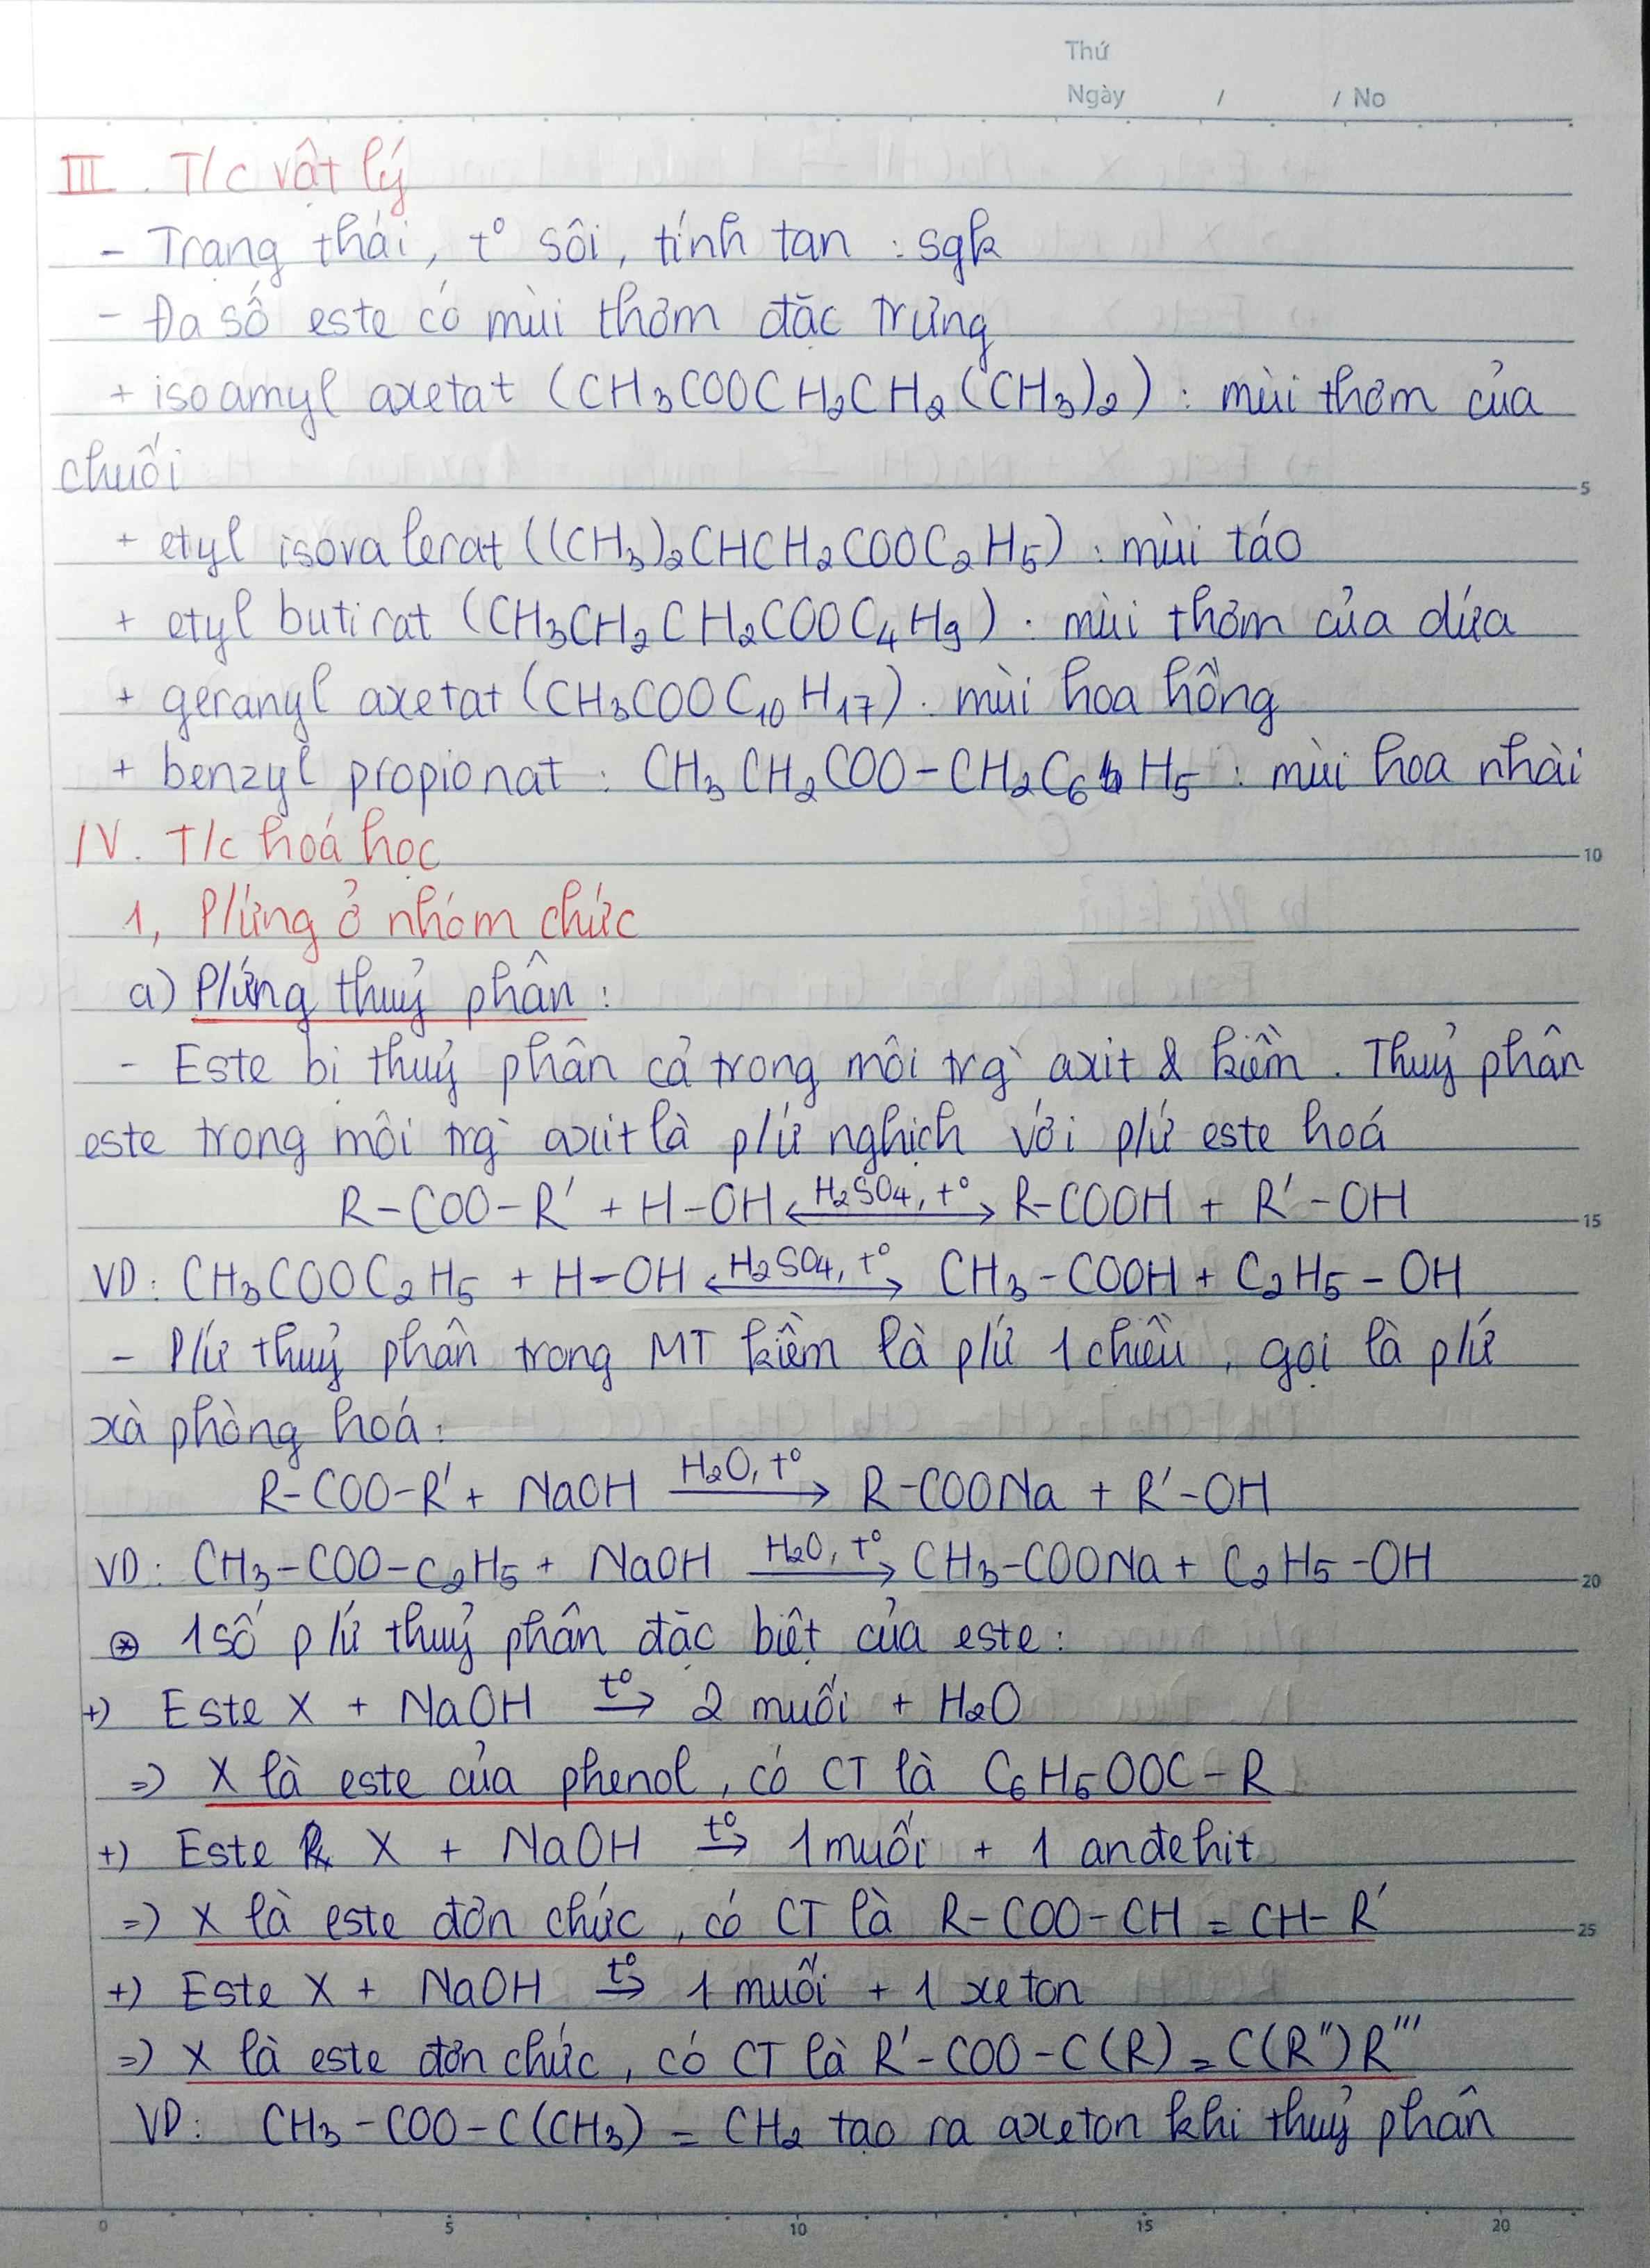 Thứ
Ngày / / No
III. T/c vật lý
- Trạng thái, t° sôi, tính tan : sgk
- Đa số este có mùi thơm đặc trưng
+ isoamyl axetat (CH₃COOCH₂CH₂(CH₃)₂) : mùi thơm của
chuối
+ etyl isovalerat ((CH₃)₂CHCH₂COOC₂H₅) : mùi táo
+ etyl butirat (CH₃CH₂CH₂COOC₄H₉) : mùi thơm của dứa
+ geranyl axetat (CH₃COOC₁₀H₁₇) : mùi hoa hồng
+ benzyl propionat : CH₃CH₂COO-CH₂C₆H₅ : mùi hoa nhài
IV. T/c hoá học
1, P/ứng ở nhóm chức
a) P/ứng thuỷ phân :
- Este bị thuỷ phân cả trong môi trg` axit & kiềm. Thuỷ phân
este trong môi trg` axit là p/ứ nghịch với p/ứ este hoá
R-COO-R' + H-OH ⟷ H₂SO₄, t° R-COOH + R'-OH
VD: CH₃COOC₂H₅ + H-OH ⟷ H₂SO₄, t° CH₃-COOH + C₂H₅-OH
- P/ứ thuỷ phân trong MT kiềm là p/ứ 1 chiều, gọi là p/ứ
xà phòng hoá:
R-COO-R' + NaOH → H₂O, t° R-COONa + R'-OH
VD: CH₃-COO-C₂H₅ + NaOH → H₂O, t° CH₃-COONa + C₂H₅-OH
⊛ 1 số p/ứ thuỷ phân đặc biệt của este:
+) Este X + NaOH → t° 2 muối + H₂O
=) X là este của phenol, có CT là C₆H₅OOC-R
+) Este X + NaOH → t° 1 muối + 1 anđehit
=) X là este đơn chức, có CT là R-COO-CH=CH-R'
+) Este X + NaOH → t° 1 muối + 1 xeton
=) X là este đơn chức, có CT là R'-COO-C(R)=C(R'')R'''
VD: CH₃-COO-C(CH₃)=CH₂ tạo ra axeton khi thuỷ phân
5
10
15
20
25
0 5 10 15 20